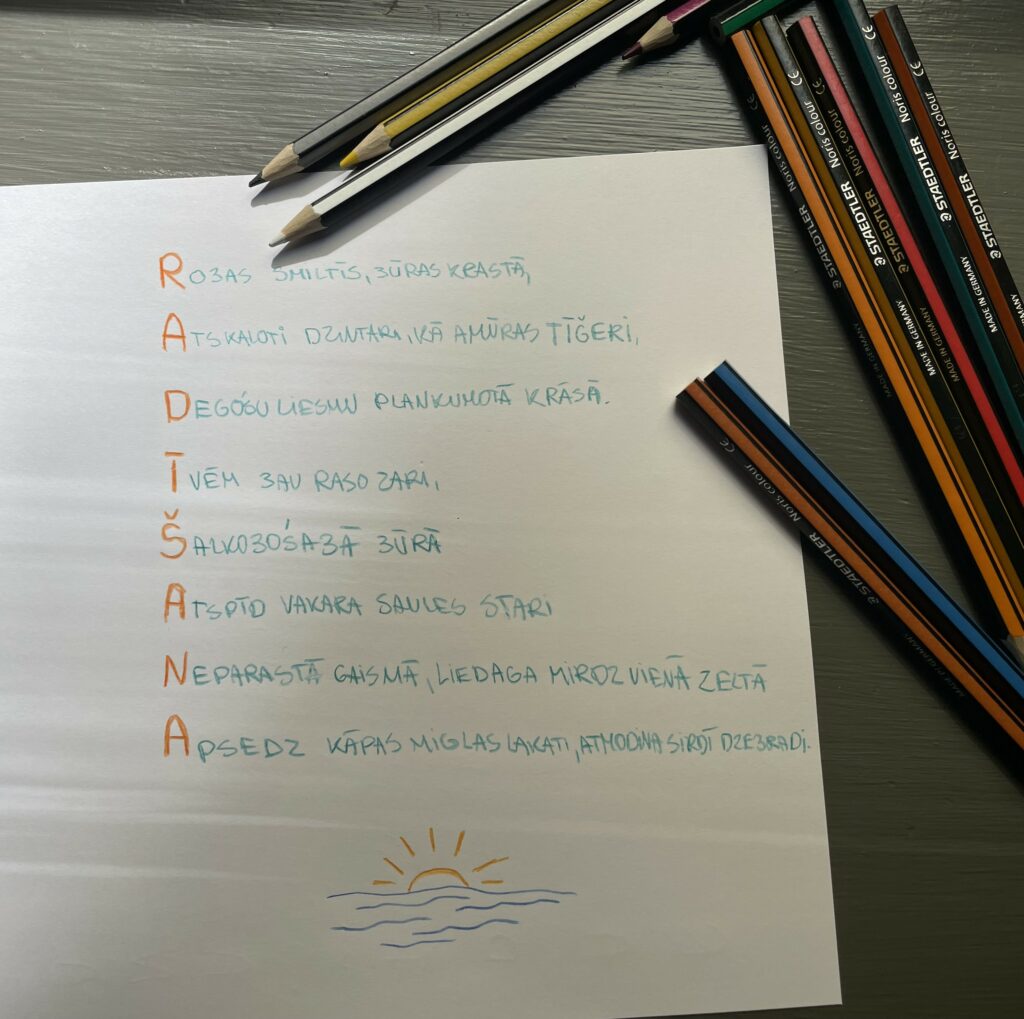 ROJAS SMILTĪS, JŪRAS KRASTĀ,
ATSKALOTI DZINTARI, KĀ AMŪRAS TĪĢERI,
DEGOŠU LIESMU PLANKUMOTĀ KRĀSĀ.
ĪVĒM JAU RASO ZARI,
ŠALKOJOŠAJĀ JŪRĀ
ATSPĪD VAKARA SAULES STARI
NEPARASTĀ GAISMĀ, LIEDAGA MIRDZ VIENĀ ZELTĀ
APSEDZ KĀPAS MIGLAS LAKATI, ATMODINA SIRDĪ DZEJRADI.
CE Noris colour STAEDTLER MADE IN GERMANY
CE Noris colour STAEDTLER MADE IN GERMANY
CE Noris colour STAEDTLER MADE IN GERMANY
CE Noris colour STAEDTLER MADE IN GERMANY
CE Noris colour STAEDTLER MADE IN GERMANY
CE Noris colour STAEDTLER MADE IN GERMANY